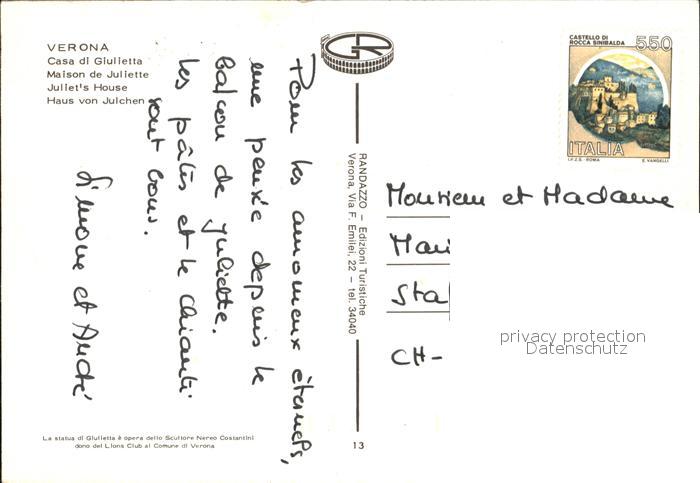 VERONA
Casa di Giulietta
Maison de Juliette
Juliet's House
Haus von Julchen
Pour les amoureux éternels,
une pensée depuis le
balcon de Juliette.
Les pâtes et le Chianti
sont bons.
Simone et André
La statua di Giulietta è opera dello Scultore Nereo Costantini
dono del Lions Club al Comune di Verona
GR
RANDAZZO – Edizioni Turistiche
Verona, Via F. Emilei, 22 – tel. 34040
13
CASTELLO DI
ROCCA SINIBALDA
550
ITALIA
I.P.Z.S. - ROMA
E. VANGELLI
Monsieur et Madame
Mari
Sta
CH-
privacy protection
Datenschutz